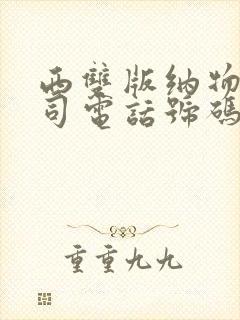 西雙版納物
司電話號碼
重重九九